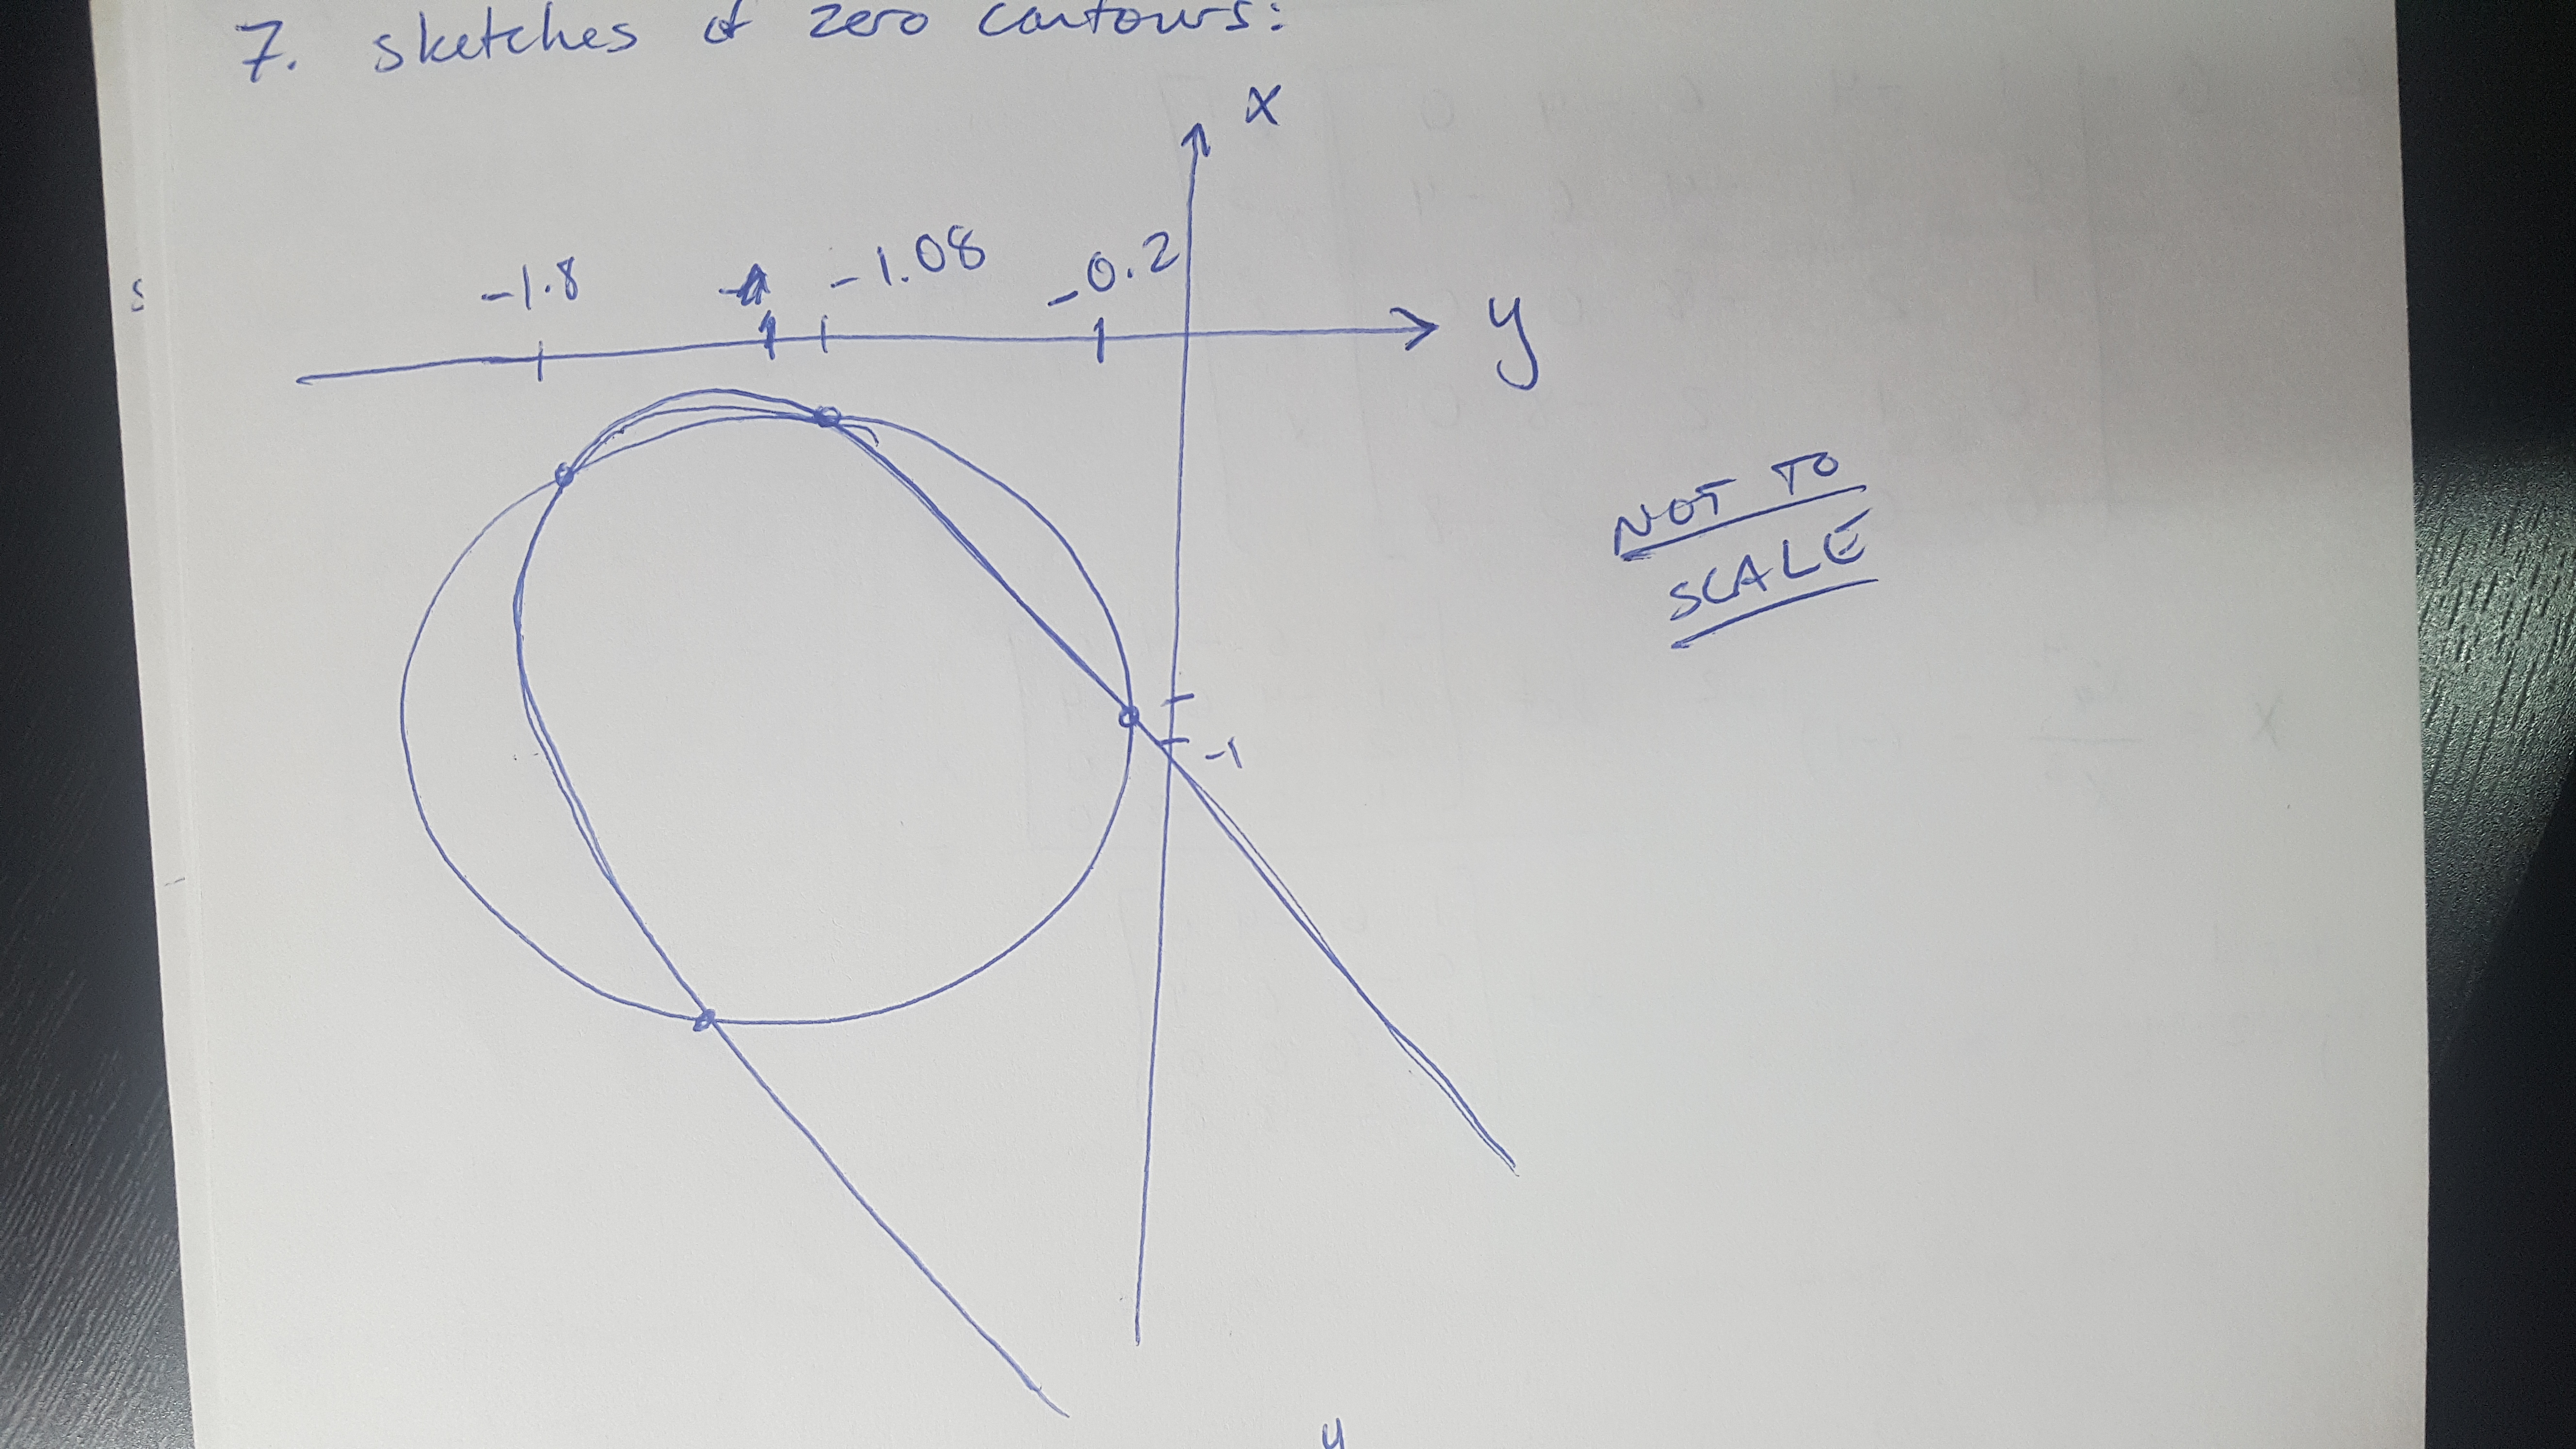 7. sketches of zero contours:
x
-1.8 -1.08 -0.2
y
s
NOT TO
SCALE
-1
y